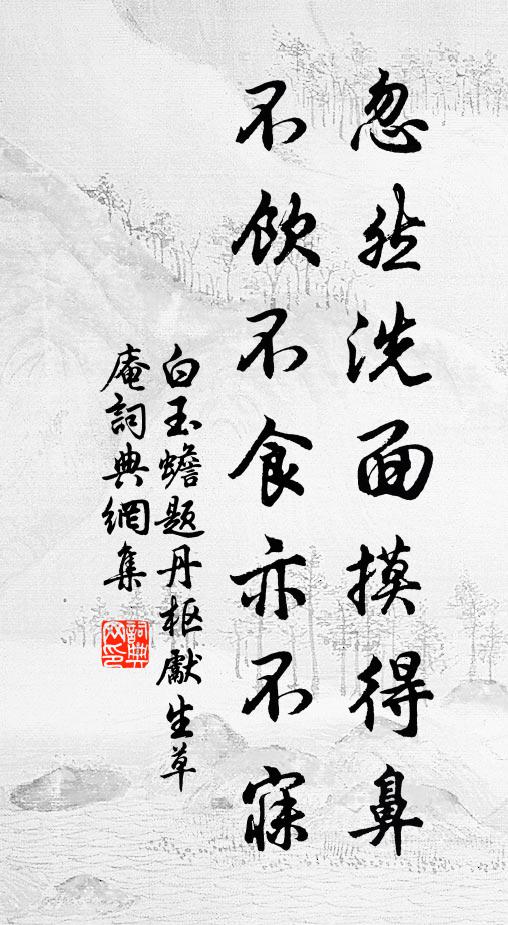 忽然洗面摸得鼻
不飲不食亦不寐
白玉蟾題丹枢獻生草
庵詞典網集
詞典
网印